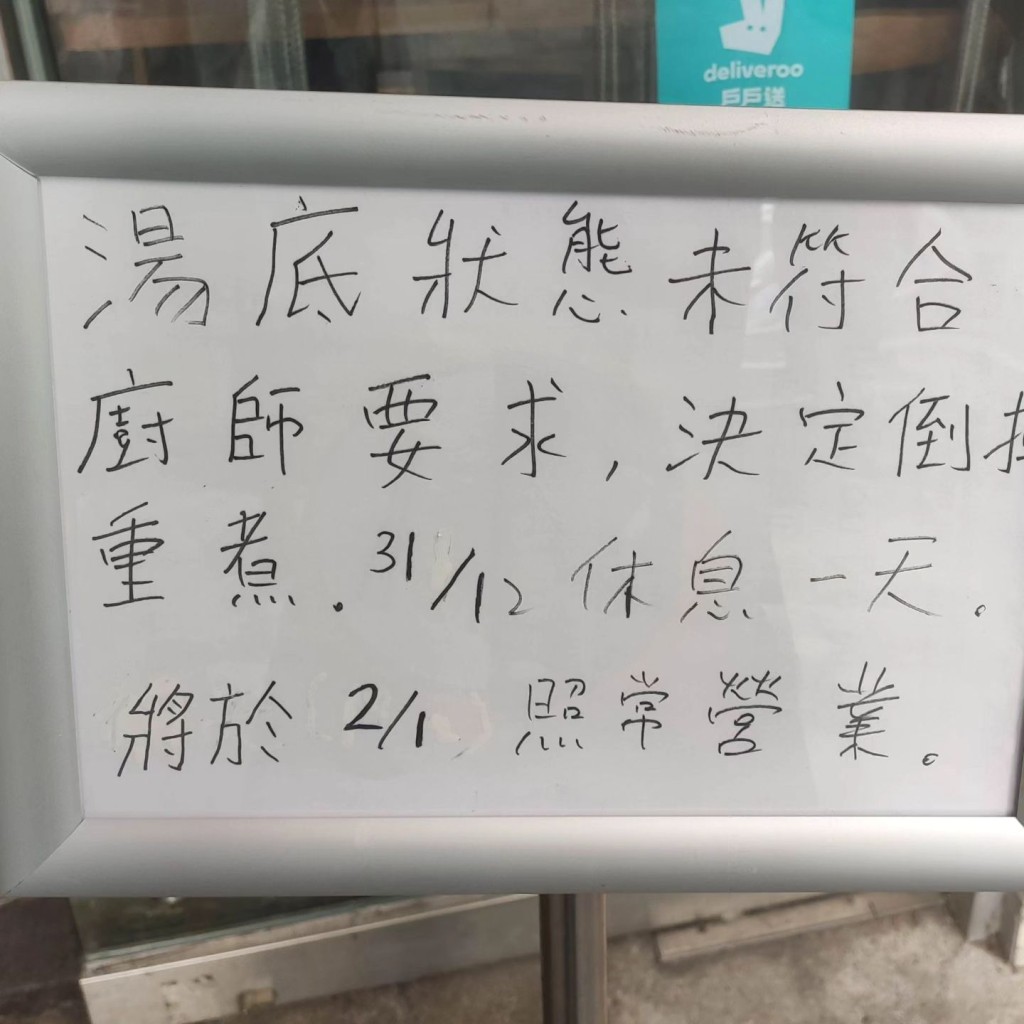 deliveroo
戶戶送
湯底狀態未符合
廚師要求,決定倒
重煮.31/12休息一天。
將於2/1照常營業。